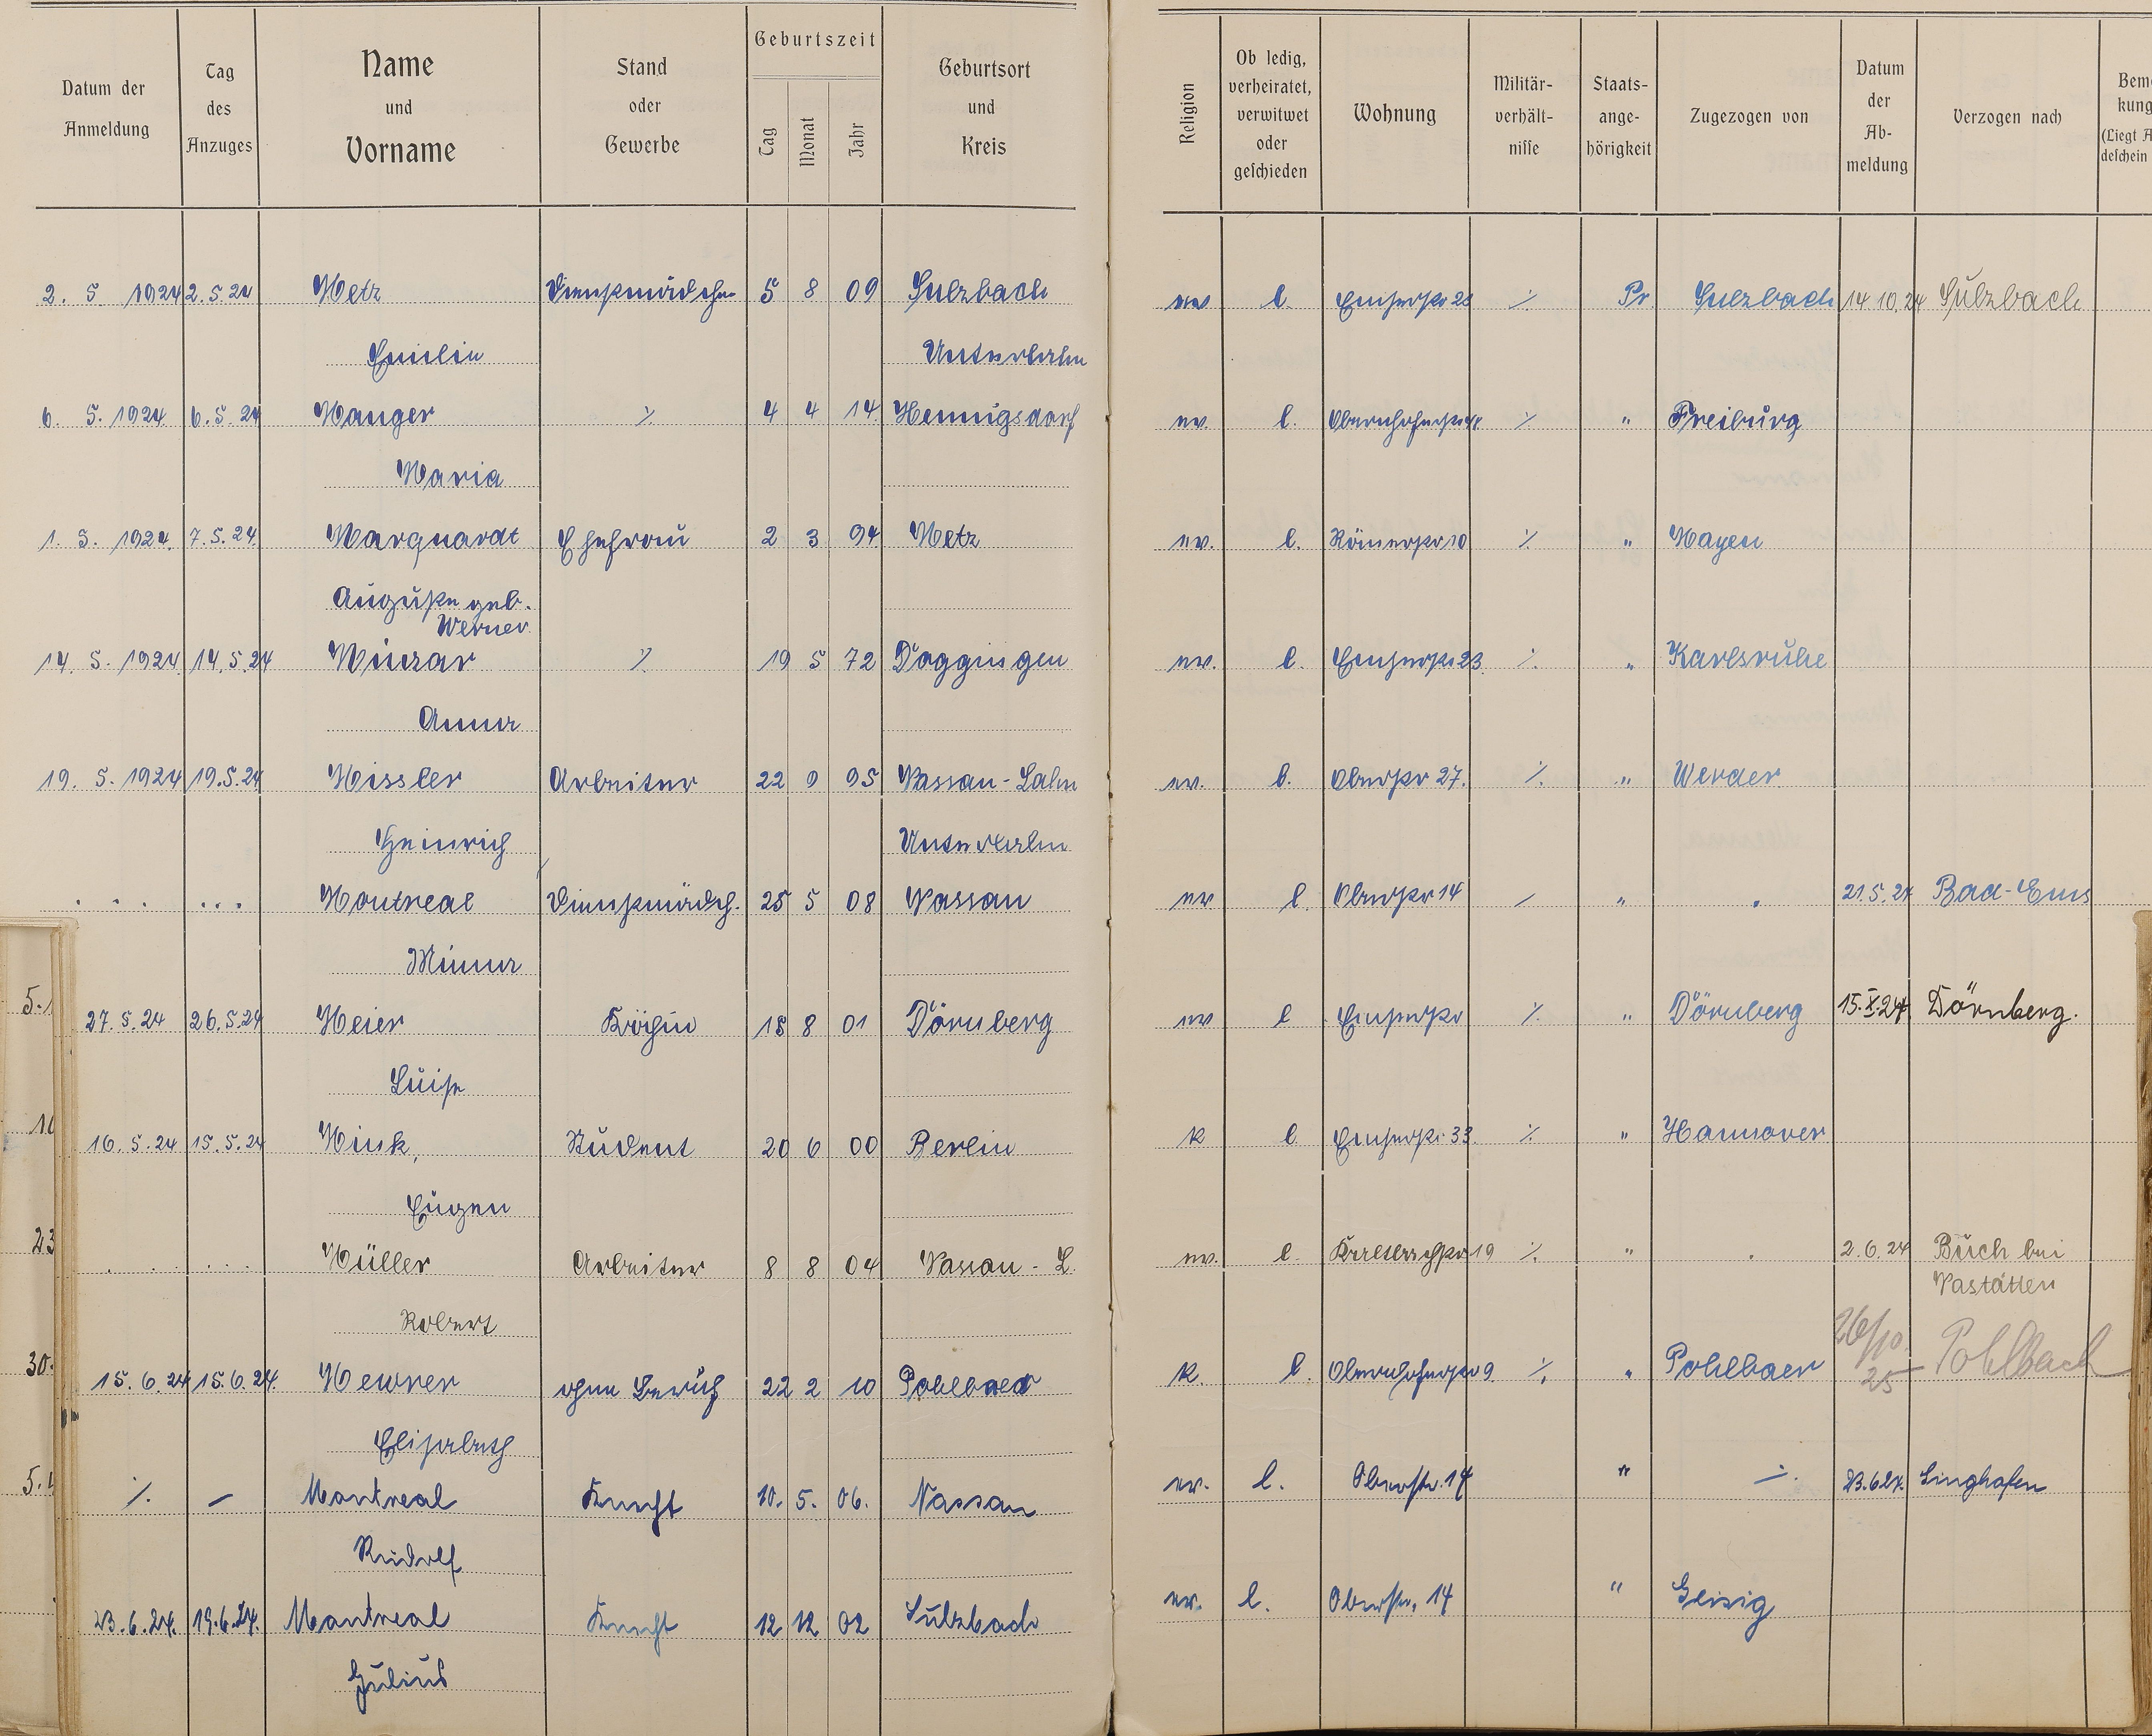 Datum der Anmeldung | Tag des Anzuges | Name und Vorname | Stand oder Gewerbe | Geburtszeit Tag Monat Jahr | Geburtsort und Kreis | Religion | Ob ledig, verheiratet, verwitwet oder geschieden | Wohnung | Militär-verhält-nisse | Staats-ange-hörigkeit | Zugezogen von | Datum der Ab-meldung | Verzogen nach | Bem kung (Liegt A deschein
2. 5. 1924 2.5.24 Metz Dienstmädchen 5 8 09 Sulzbach ev. l. Emserstr 20 ·/. Pr. Sulzbach 14.10.24 Sulzbach
Emilie Unterlahn
6. 5. 1924 6.5.24 Manger ·/. 4 4 14 Hennigsdorf ev. l. ·/. " Freiburg
Maria
1. 5. 1924. 7.5.24. Marquardt Ehefrau 2 3 94 Metz ev. l. Römerstr 10 ·/. " Mayen
Auguste geb.
Werner
14. 5. 1924. 14.5.24 ·/. 19 5 72 Döggingen ev. l. Emserstr 23. ·/. " Karlsruhe
Anna
19. 5. 1924 19.5.24 Missler Arbeiter 22 9 95 Nassau-Lahn ev. l. Oberstr 27. ·/. " Werder
Heinrich Unterlahn
. . . ... Montreal Dienstmädch. 25 5 08 Nassau ev l. Oberstr 14 / " . 21.5.24 Bad-Ems
Minna
27.5.24 26.5.24 Meier Köchin 18 8 01 Dörnberg ev l Emserstr ·/. " Dörnberg 15.X.24 Dörnberg.
Luise
16.5.24 15.5.24 Mink, Student 20 6 00 Berlin K l Emserstr 33. ·/. " Hannover
Eugen
. . . . . . Müller Arbeiter 8 8 04 Nassau - L. ev. l. 19 ·/. " . 2.6.24 Buch bei
Nastätten
Robert
15.6.24 15.6.24. ohne Beruf 22 2 10 K. l. 9 ·/. " 26/10. 25 Pohlbach
Elisabeth
·/. – Montreal Knecht 10. 5. 06. Nassau ev. l. Oberstr. 14 " ·/. 23.6.24. Singhofen
Rudolf
23.6.24. 19.6.24. Montreal Knecht 12 12 02 Sulzbach ev. l. Oberstr. 14 " Geisig
Julius